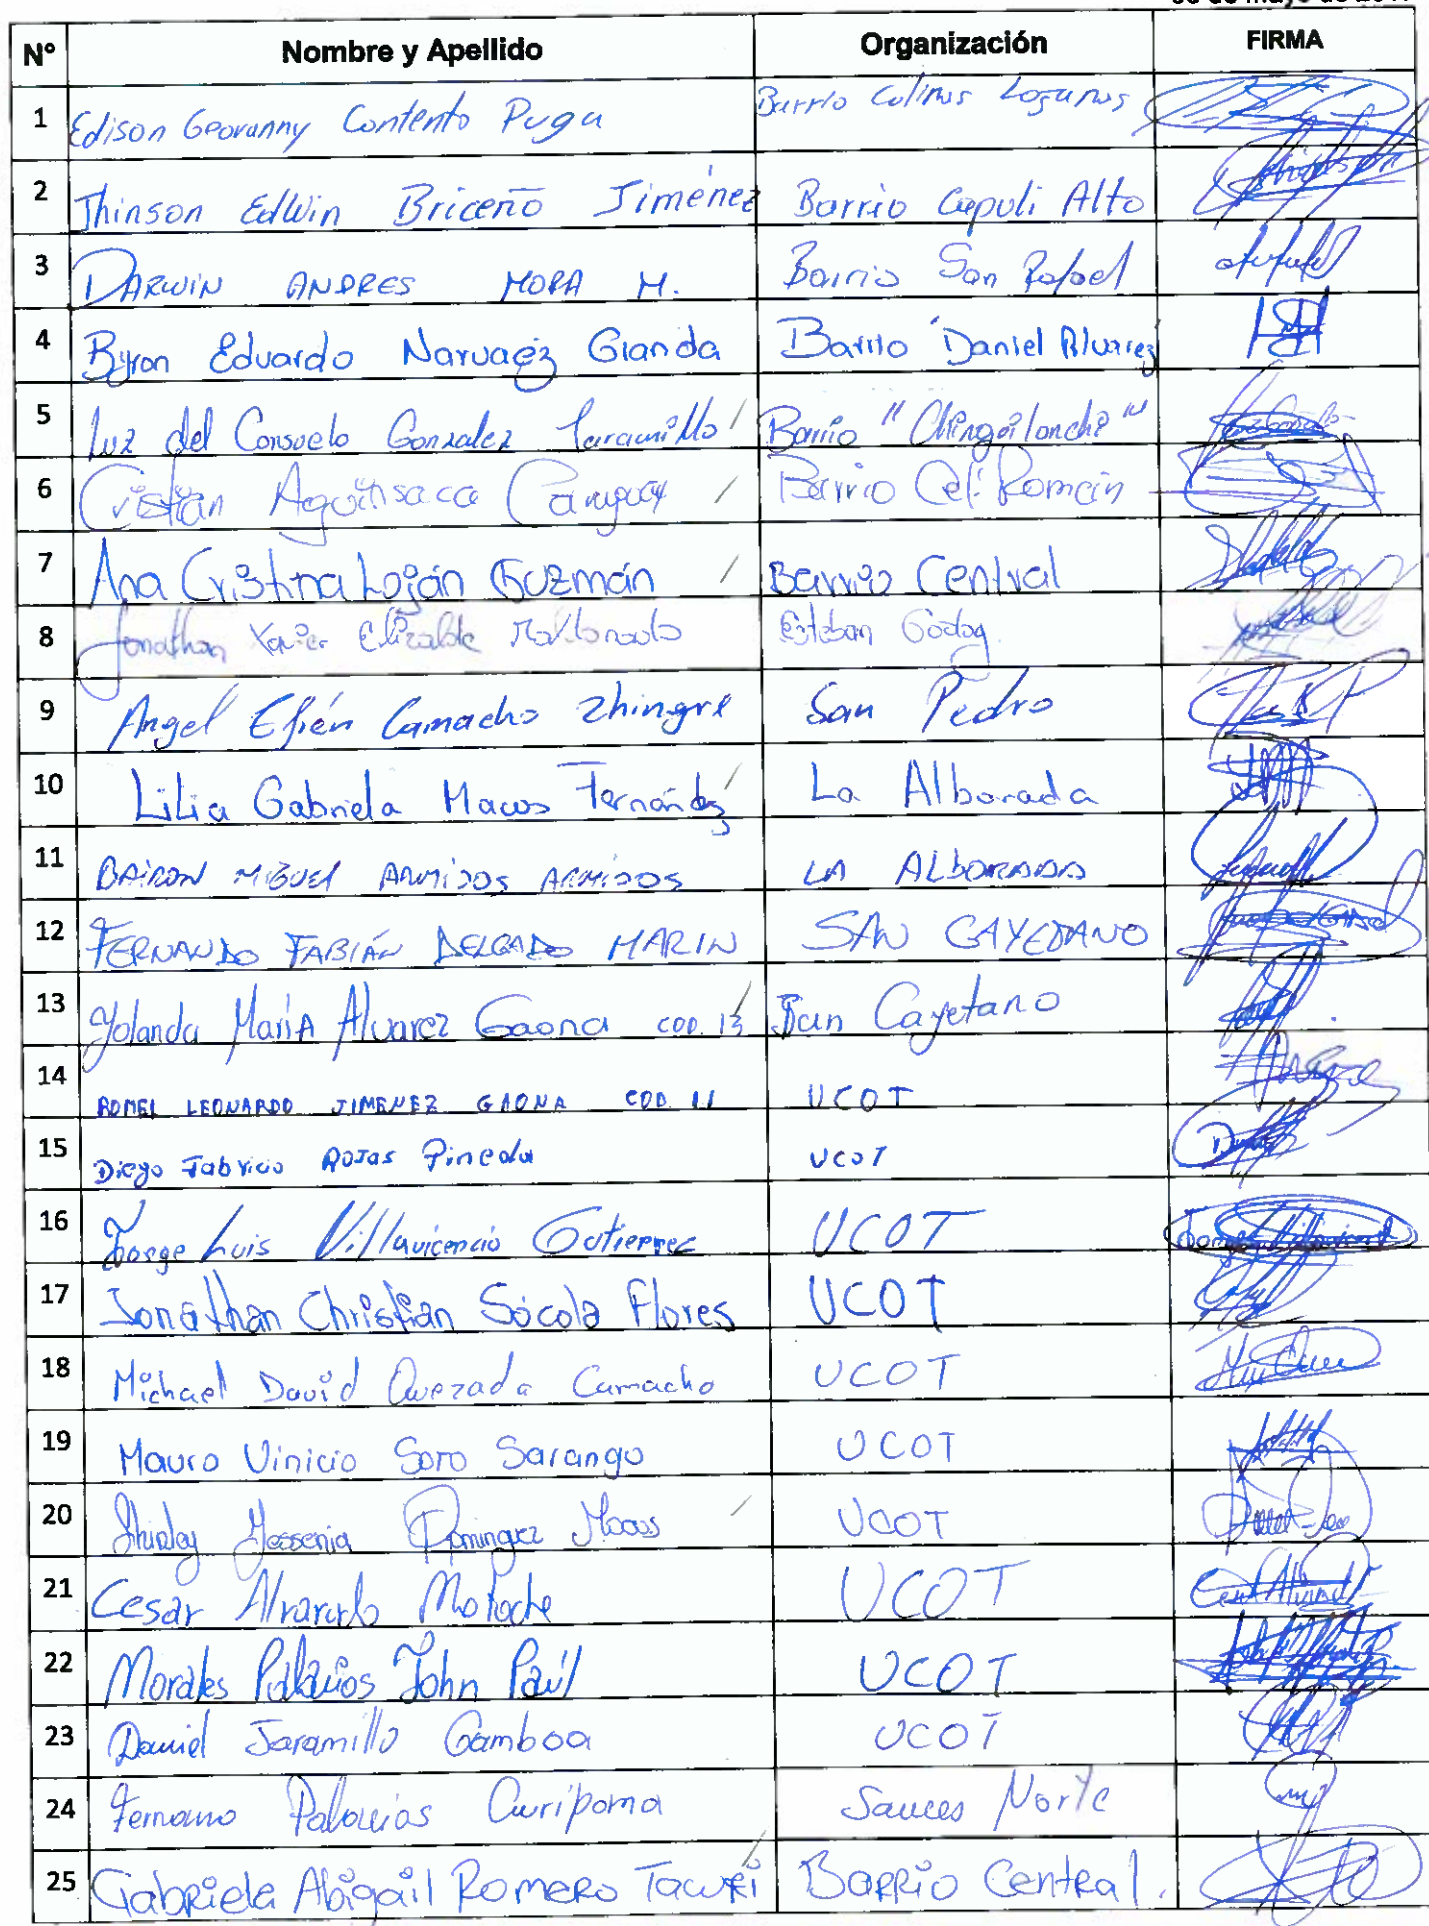 Nº Nombre y Apellido Organización FIRMA
1 Edison Geovanny Contento Puga Barrio Colinas Lojanas
2 Jhinson Edwin Briceño Jiménez Barrio Capuli Alto
3 DARWIN ANDRES MORA M. Barrio San Rafael
4 Byron Eduardo Narvaez Granda Barrio "Daniel Alvarez
5 Luz del Consuelo Gonzalez Jaramillo / Barrio "Chinguilanchi"
6 Cristian Aguinsaca / Barrio Celi Roman
7 Ana Cristina Loján Guzmán / Barrio Central
8 Jonathan Xavier Elizalde Maldonado Esteban Godoy
9 Angel Efrén Camacho Zhingre San Pedro
10 Lilia Gabriela Macas Fernández / La Alborada
11 BAIRON MIGUEL ARMIJOS ARMIJOS LA ALBORADA
12 FERNANDO FABIÁN DELGADO MARIN SAN CAYETANO
13 Yolanda MaríA Alvarez Gaona COD. 13 / San Cayetano
14 ROMEL LEONARDO JIMENEZ GAONA COD. 11 UCOT
15 Diego Fabricio Rojas Pineda UCOT
16 Jorge Luis Villavicencio Gutierrez UCOT
17 Jonathan Christian Sócola Flores UCOT
18 Michael David Quezada Camacho UCOT
19 Mauro Vinicio Soto Sarango UCOT
20 Shirley Yessenia Dominguez Macas / UCOT
21 Cesar Alvarado Motoche UCOT
22 Morales Palacios John Paúl UCOT
23 Daniel Jaramillo Gamboa UCOT
24 Fernano Palacios Curipoma Sauces Norte
25 Gabriela Abigail Romero Tacuri / Barrio Central.